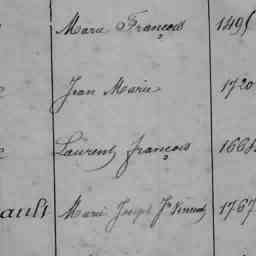 Marie François 149
Jean Marie 1720
Laurent françois 166
aults Marie Joseph 1767